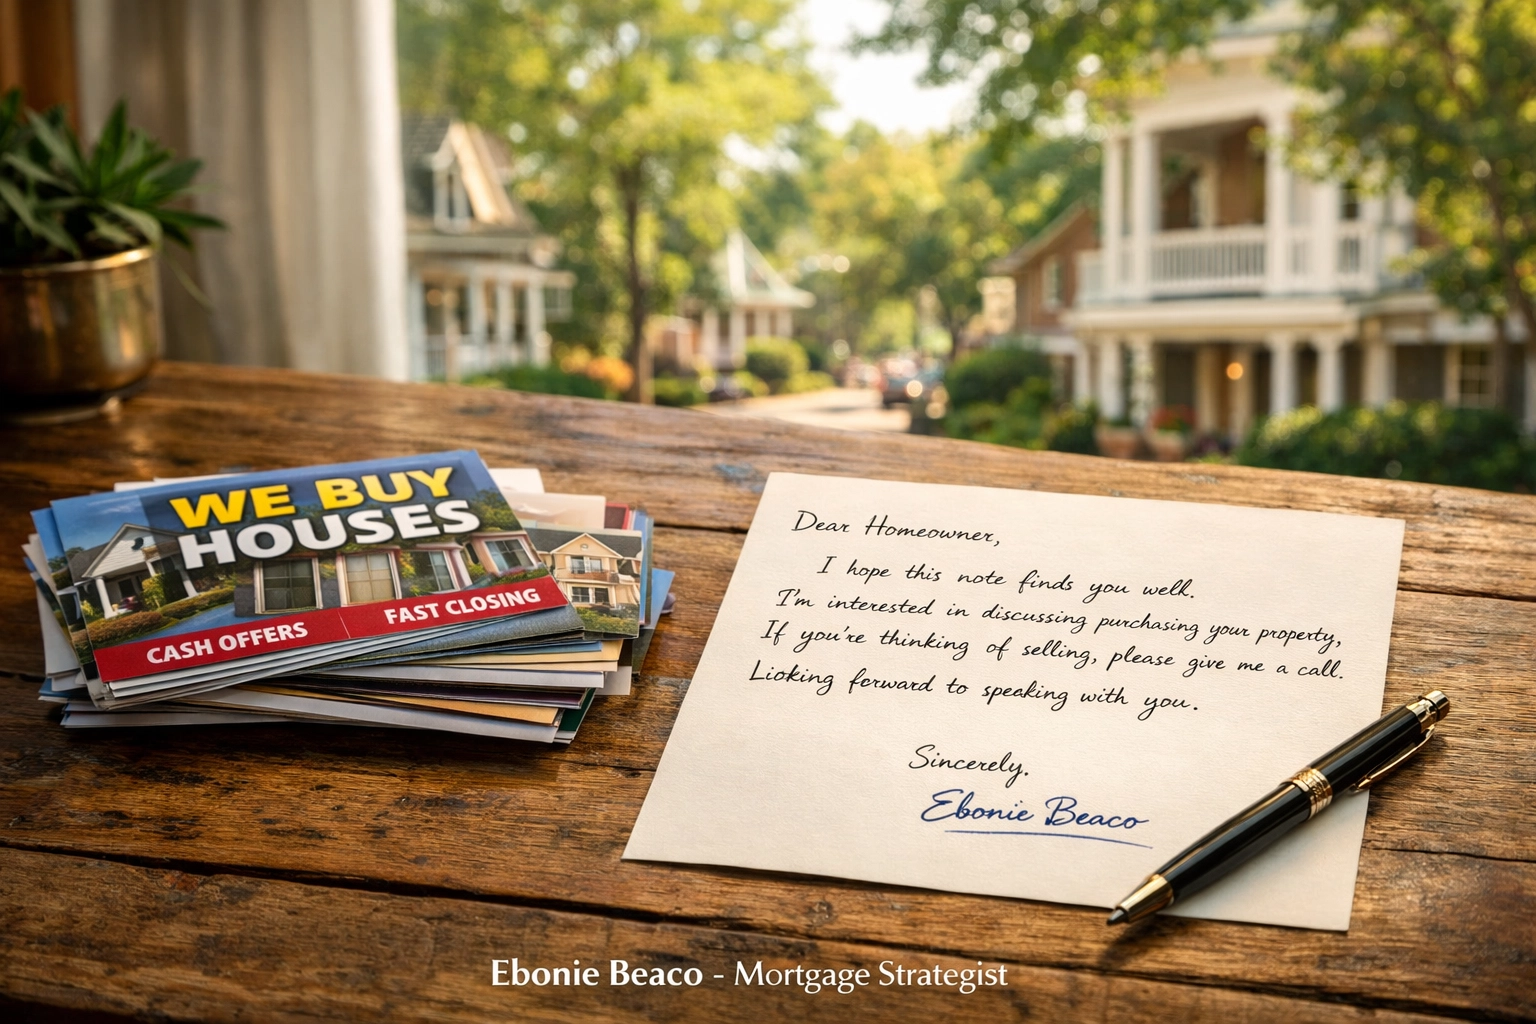 WE BUY
HOUSES
CASH OFFERS
FAST CLOSING
Dear Homeowner,
I hope this note finds you well.
I'm interested in discussing purchasing your property,
If you're thinking of selling, please give me a call.
Lioking forward to speaking with you.
Sincerely.
Ebonie Beaco
Ebonie Beaco - Mortgage Strategist